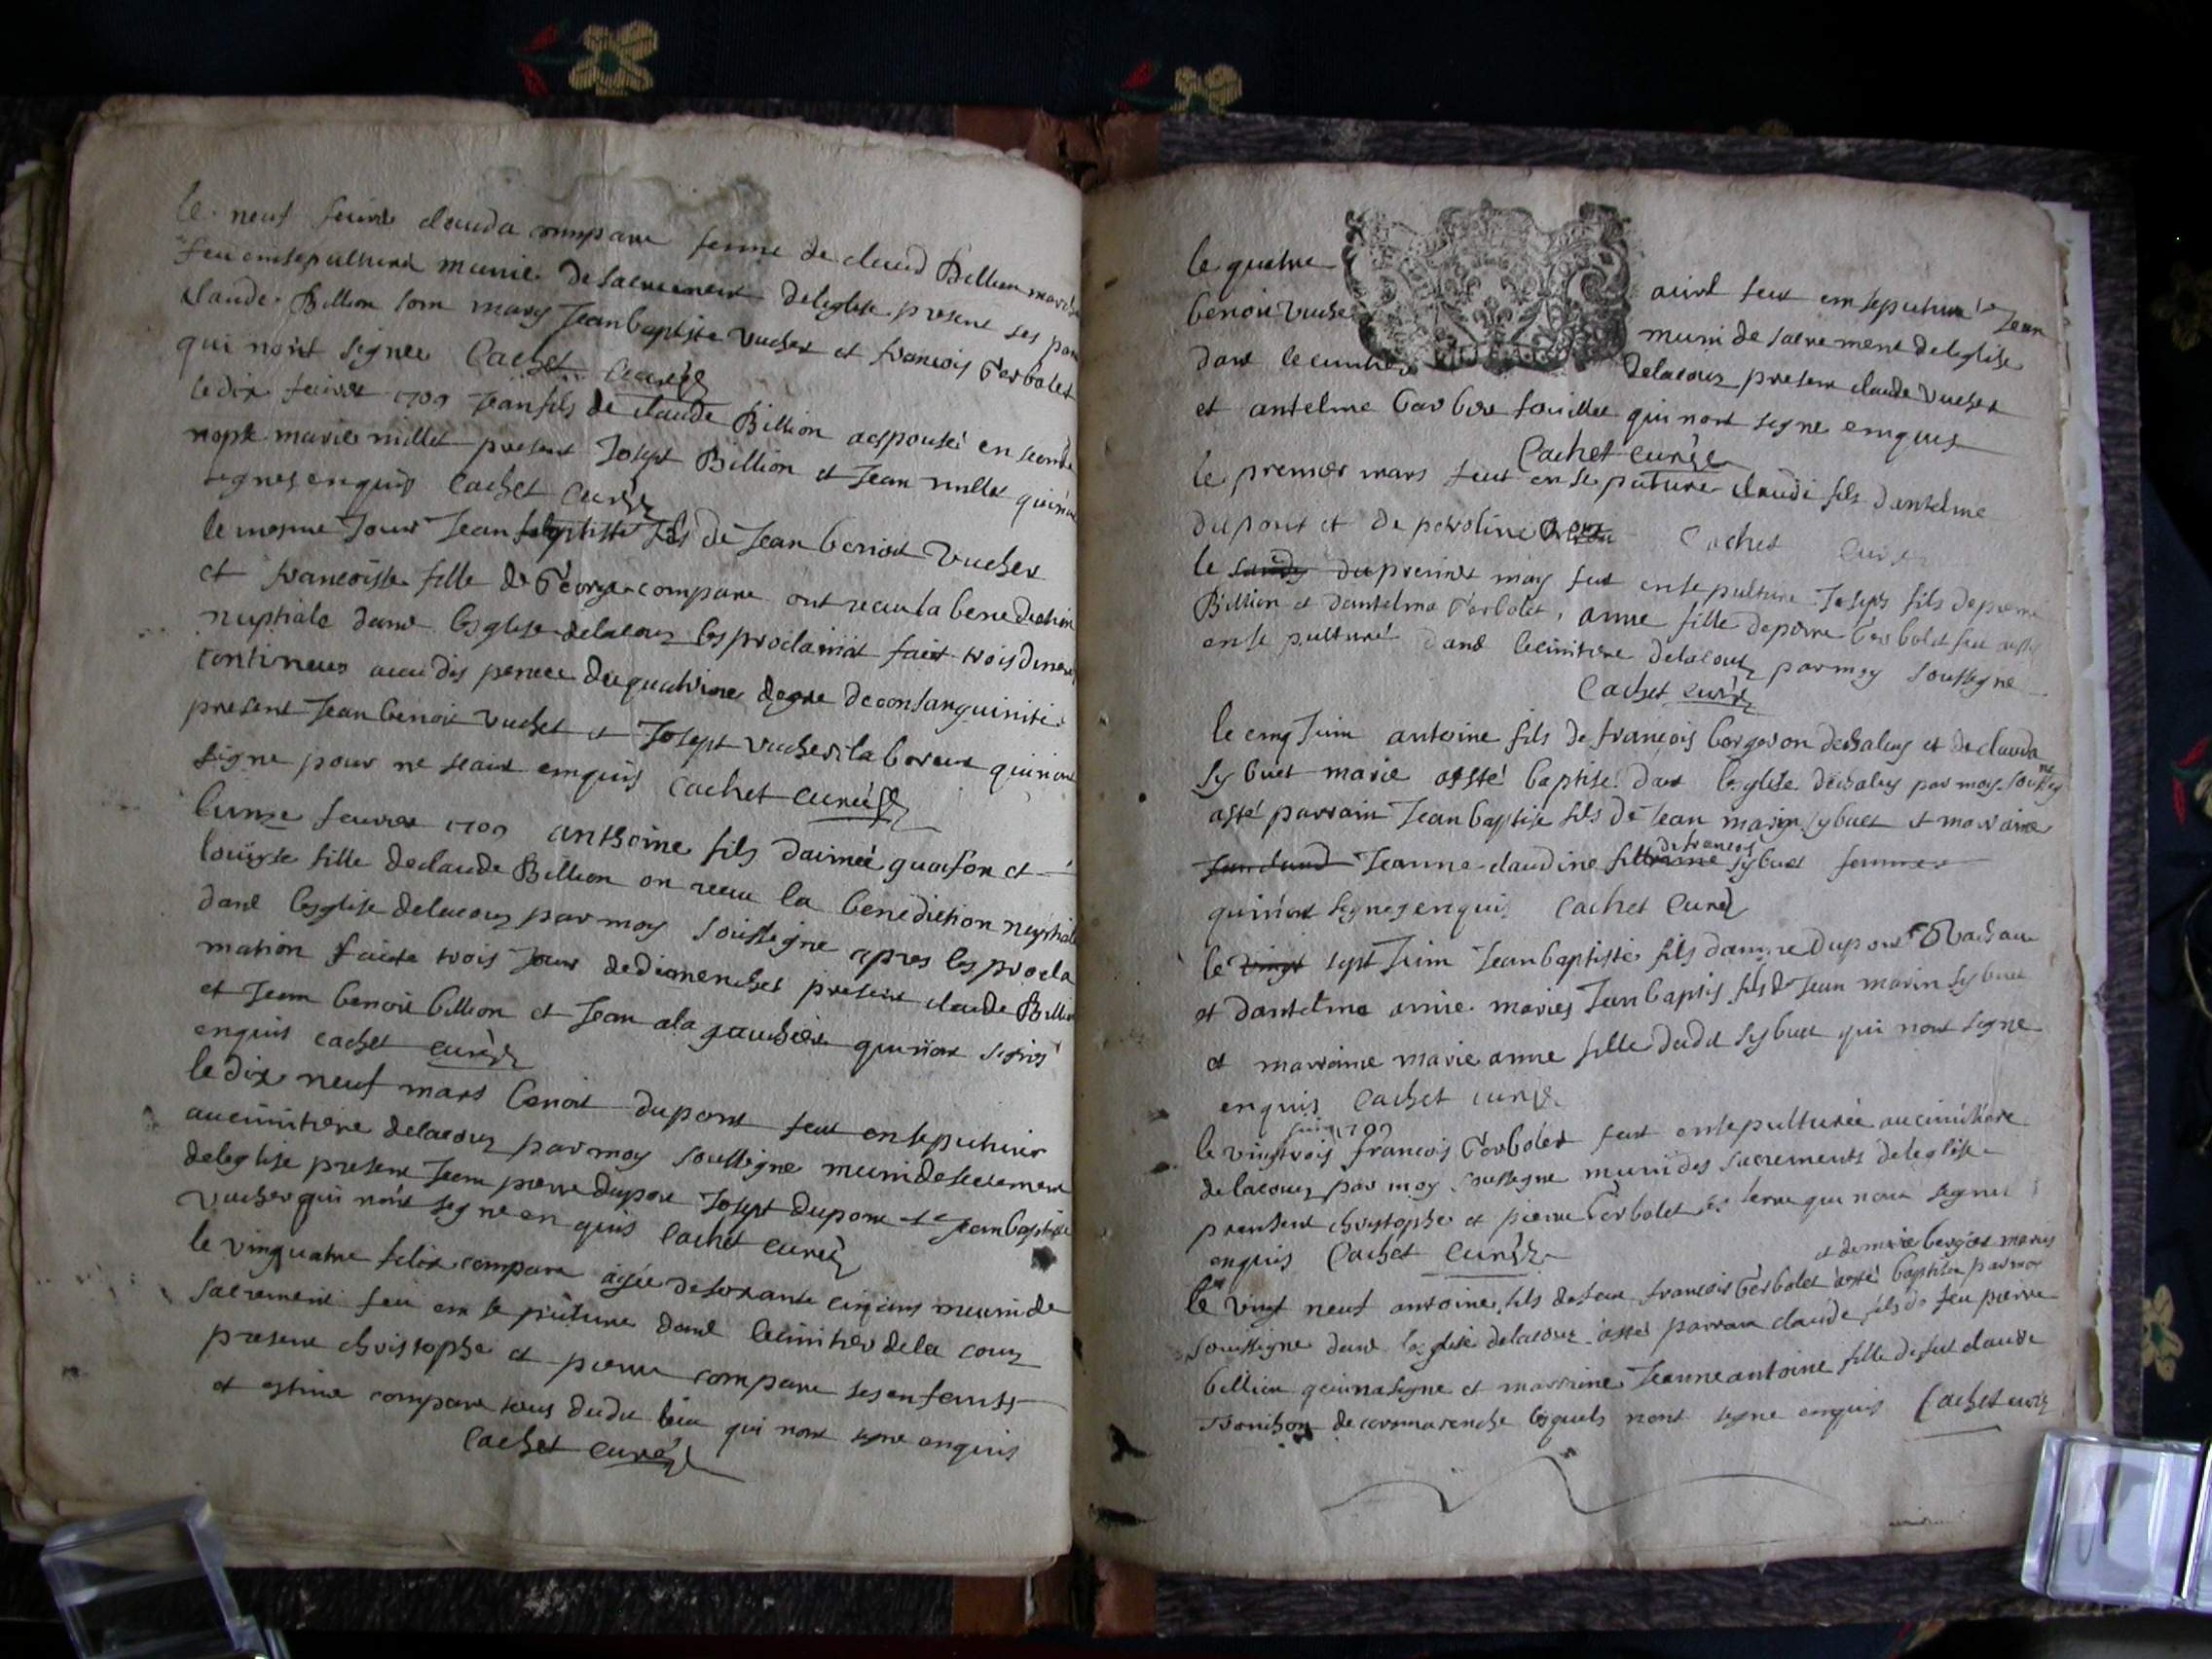 le neuf feuvre clauda compare femme de claud Billion
feu ensepulturé munie de sacrement deleglise present ses
claude Billion son mary Jean baptiste vucher et francois Gerbolet
qui nont signee Cachet curé
le dix feuvre 1709 Jean fils de claude Billion a espousé en
marie millet present Joseph Billion et Jean millet
signes enquis Cachet curé
le mesme Jour Jean fils de Jean benoit vucher
et francoise fille de George compare ont receu la benediction
nuptiale dans leglise delacoux les proclamat fait trois
contineues auec dispence du quatrieme degre de consanguinite
present Jean benoit vucher et Joseph vucher laboreur qui nont
signe pour ne scauit enquis Cachet curé
lunze feuvrer 1709 anthoine fils daimeé et
louyse fille declaude Billion on receu la benediction nuptial
dans leglise delacoux par moy soussigne apres les procla
mation faicte trois Jour dedimenches present claude Billion
et Jean benoit billion et Jean qui nont signé
enquis cachet curé
le dix neuf mars benoit dupont feut ensepulturé
au cimitiere delacoux par moy soussigne muni de sacrement
deleglise present Jean pierre dupont Joseph dupont et Jean baptiste
vucher qui nont segne enquis Cachet curé
le vinquatre felix compare agée de soxante cinq ans muni de
sacrement feu ensepulture dans lecimitier dela coux
present christophe et pierre compare ses enfants
et compare tous dudit lieu qui nont segne enquis
Cachet curé
le quatre auril feut ensepulturé Jean
benoit vucher muni de sacrement deleglise
dans lecimitiere delacoux present claude vucher
et antelme qui nont segne enquis
Cachet curé
le premier mars feut ensepulture claudi fils dantelme
dupont et de peroline Cachet curé
le premier may feut ensepulture Joseph fils depierre
Billion et dantelma Gerbolet, anne fille depierre Gerbolet feu
ensepulturé dans lecimitiere delacoux par moy soussigne
Cachet curé
le cinq Juin antoine fils de francois borgeron dechaley et de clauda
sybuet marié asté baptisé dans leglise dechaley par moy soussigné
asté parrain Jean baptise fils de Jean marin sybuet et marraine
Jeanne claudine fille de francois sybuet
qui nont signes enquis Cachet curé
le vingt sept Juin Jean baptiste fils dupont
et dantelma maries Jean baptis fils de Jean marin sybuet
et marraine marie anne fille dudit sybuet qui nont segne
enquis Cachet curé
Juin 1709
le vingtrois francois Gerbolet feut ensepulturée aucimitiere
delacoux par moy soussigne muni des sacrements deleglise
present christophe et pierre Gerbolet qui nont signes
enquis Cachet curé
et de marie maries
le vingt neuf antoine fils defeu francois Gerbolet asté baptisée par moy
soussigne dans leglise delacoux astes parrain claude fils de feu pierre
billion qui nasigne et marraine Jeanne antoine fille de feu claude
de cormaranche lesquels nont segne enquis Cachet curé